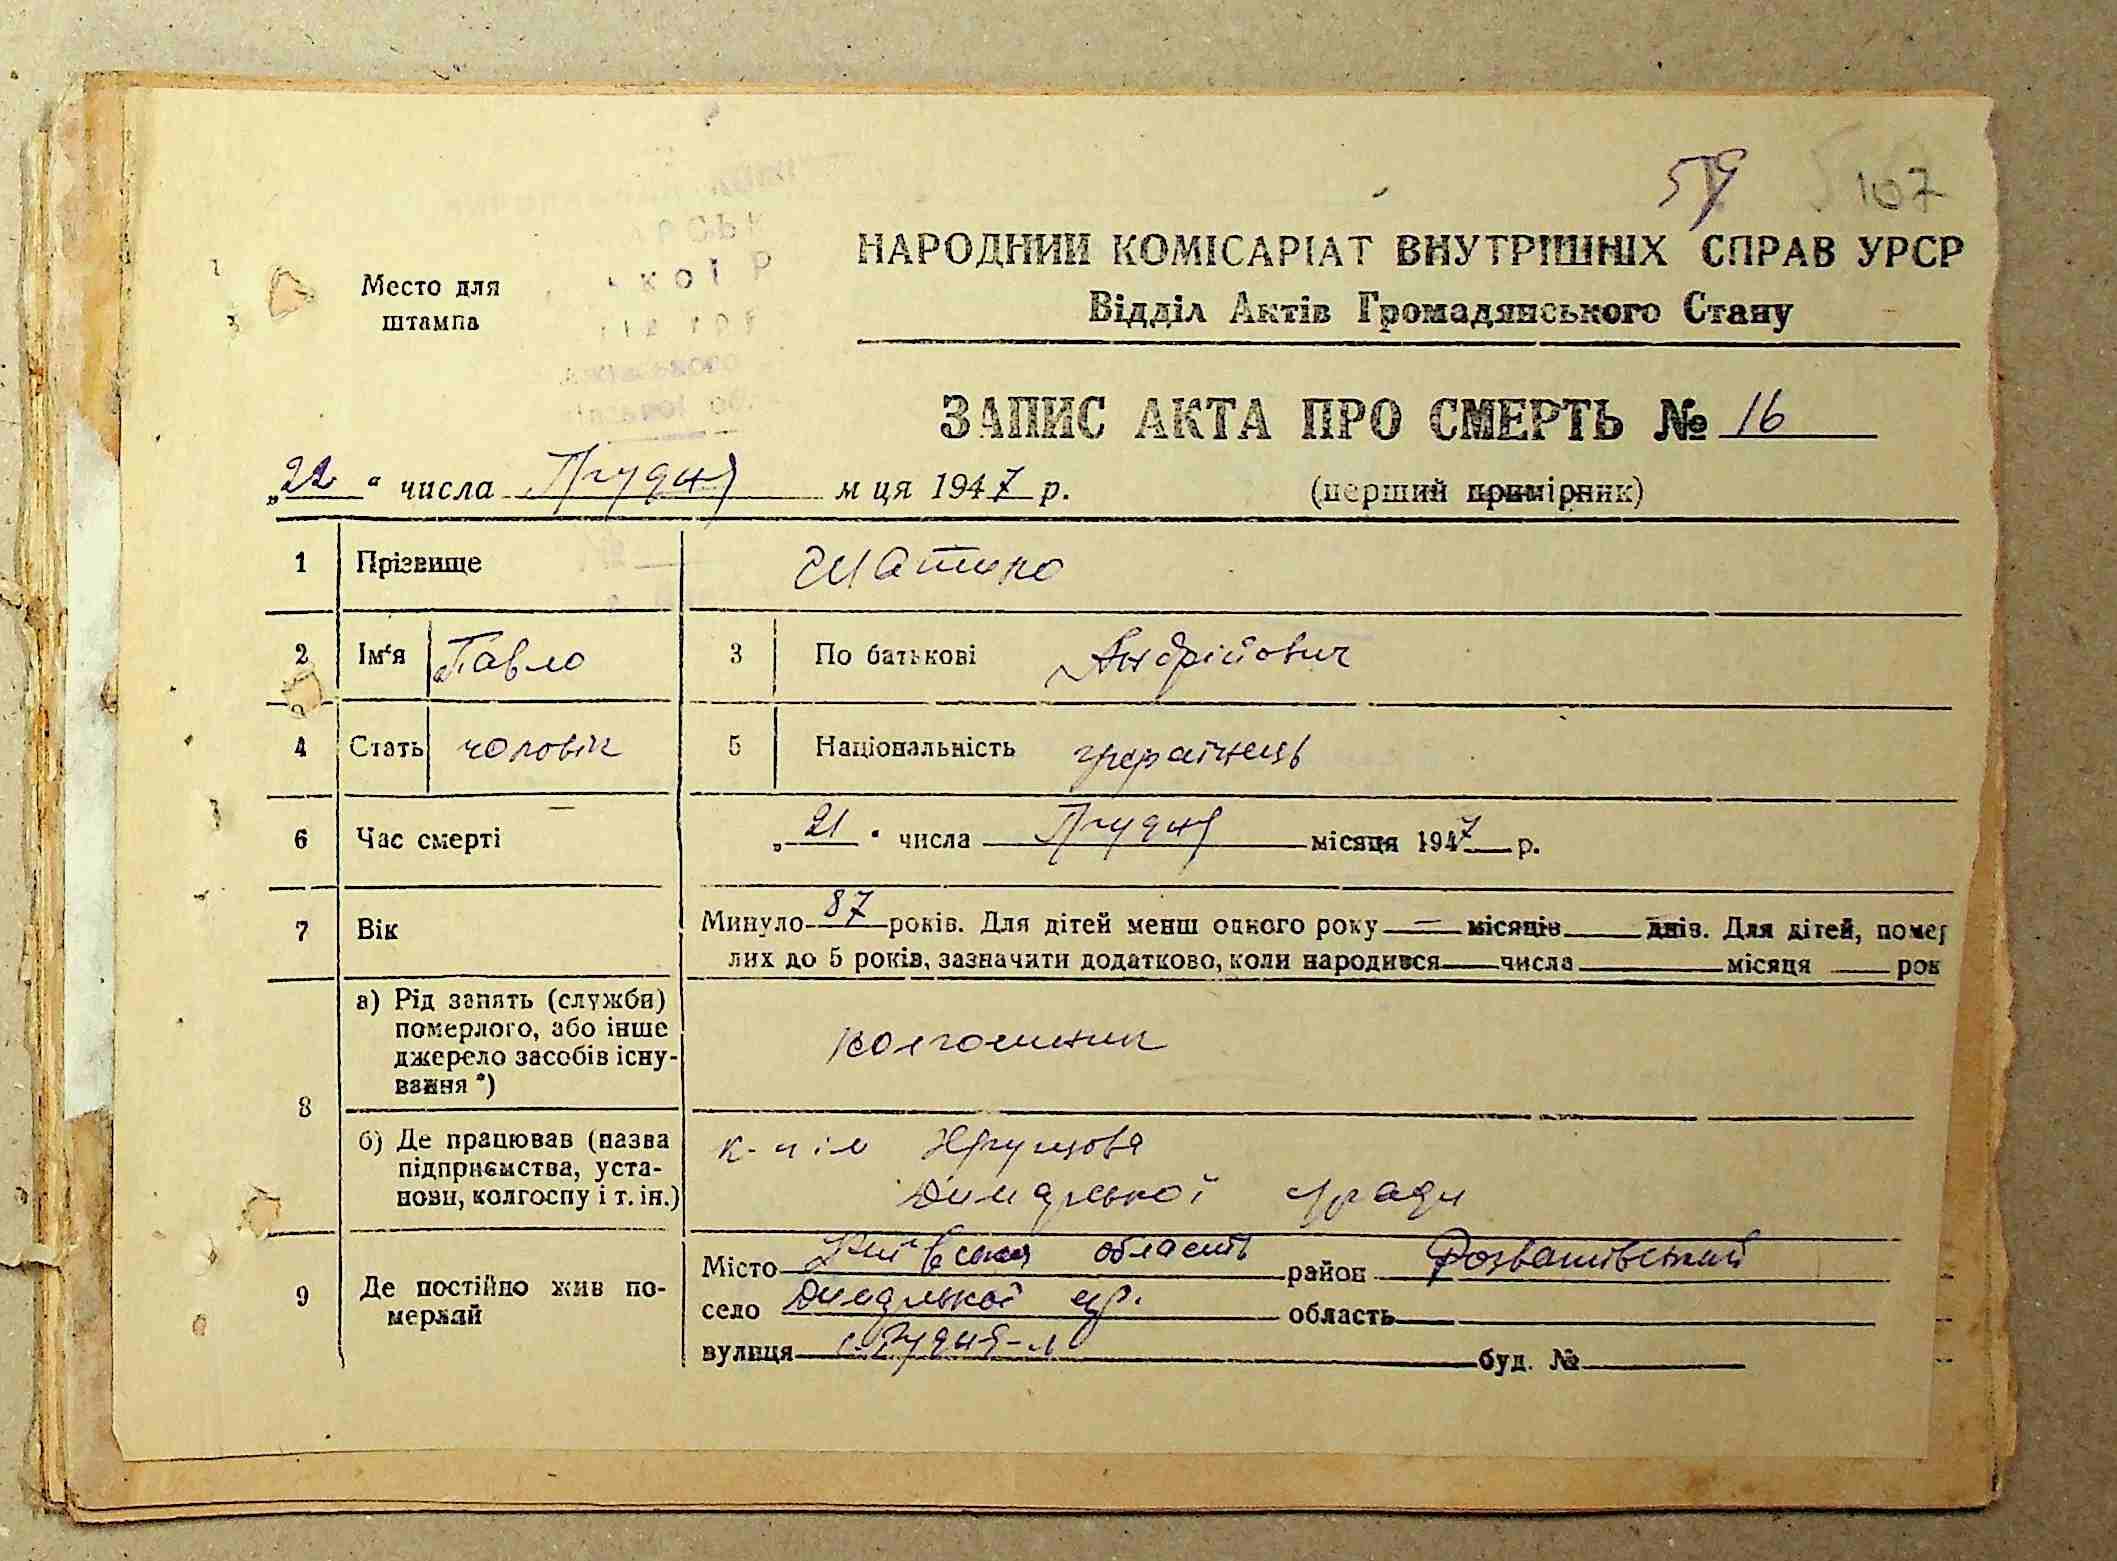 59 107
Место для
штампа
НАРОДНИЙ КОМІСАРІАТ ВНУТРІШНІХ СПРАВ УРСР
Відділ Актів Громадянського Стану
ЗАПИС АКТА ПРО СМЕРТЬ № 16
„22“ числа Грудня м ця 1947 р. (перший примірник)
1 Прізвище Шатило
2 Ім‘я Павло 3 По батькові Андрійович
4 Стать чоловік 5 Національність українець
6 Час смерті „21“ числа Грудня місяця 1947 р.
7 Вік Минуло 87 років. Для дітей менш одного року — місяців днів. Для дітей, помер
лих до 5 років, зазначити додатково, коли народився числа місяця рок
8 а) Рід занять (служби)
померлого, або інше
джерело засобів існу-
вання *)
колгошник
б) Де працював (назва
підприємства, уста-
нови, колгоспу і т. ін.)
к-п ім Хрущова
Димарської с/ради
9 Де постійно жив по-
мерлий
Місто Київська область район Розважівський
село Димарської ср. область
вулиця с. Рудня- буд. №